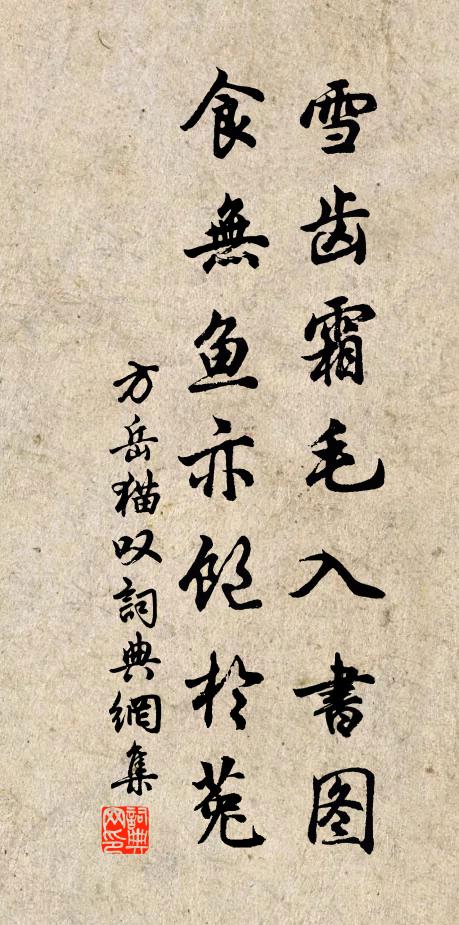 雪齿霜毛入書图
食無鱼亦飽於菟
方岳猫叹詞典網集
詞典网印